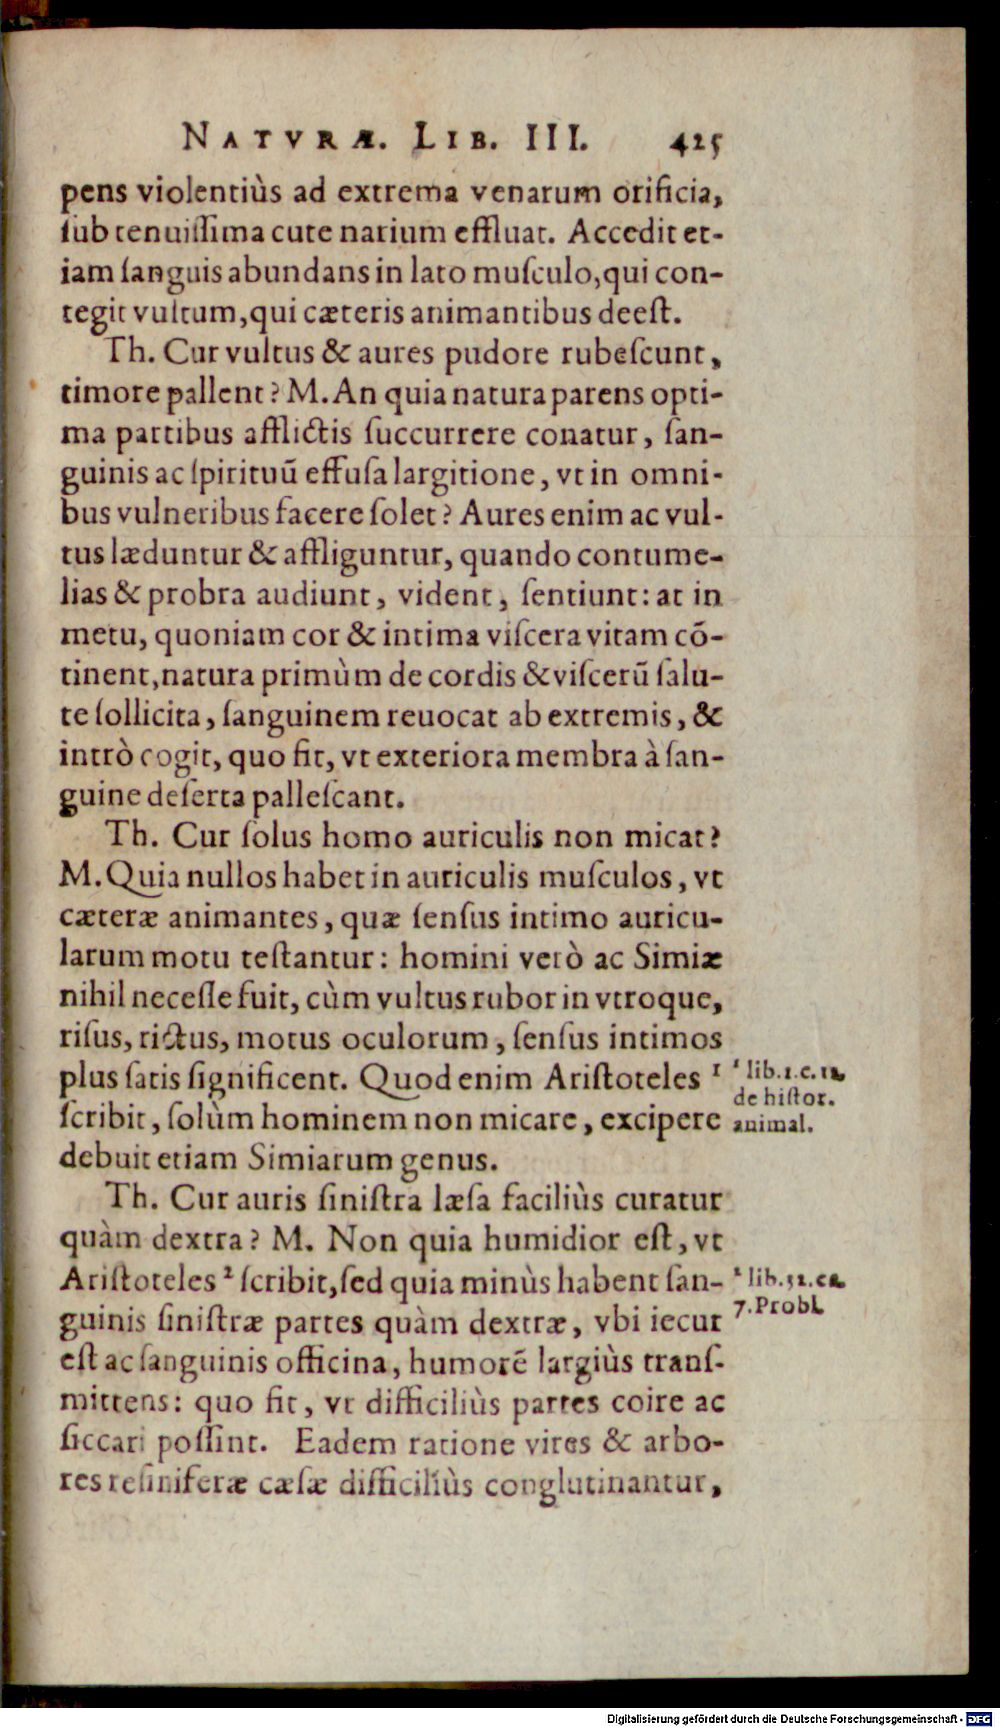 NATVRÆ. LIB. III. 425
pens violentiùs ad extrema venarum orificia,
ſub tenuiſſima cute narium effluat. Accedit et-
iam ſanguis abundans in lato muſculo, qui con-
tegit vultum, qui cæteris animantibus deeſt.
Th. Cur vultus & aures pudore rubeſcunt,
timore pallent? M. An quia natura parens opti-
ma partibus afflictis ſuccurrere conatur, ſan-
guinis ac ſpirituū effuſa largitione, vt in omni-
bus vulneribus facere ſolet? Aures enim ac vul-
tus læduntur & affliguntur, quando contume-
lias & probra audiunt, vident, ſentiunt: at in
metu, quoniam cor & intima viſcera vitam cō-
tinent, natura primùm de cordis & viſcerū ſalu-
te ſollicita, ſanguinem reuocat ab extremis, &
intrò cogit, quo fit, vt exteriora membra à ſan-
guine deſerta palleſcant.
Th. Cur ſolus homo auriculis non micat?
M. Quia nullos habet in auriculis muſculos, vt
cæteræ animantes, quæ ſenſus intimo auricu-
larum motu teſtantur: homini verò ac Simiæ
nihil neceſſe fuit, cùm vultus rubor in vtroque,
riſus, rictus, motus oculorum, ſenſus intimos
plus ſatis ſignificent. Quod enim Ariſtoteles ¹
ſcribit, ſolùm hominem non micare, excipere
debuit etiam Simiarum genus.
¹ lib. 1. c. 12.
de hiſtor.
animal.
Th. Cur auris ſiniſtra læſa faciliùs curatur
quàm dextra? M. Non quia humidior eſt, vt
Ariſtoteles ² ſcribit, ſed quia minùs habent ſan-
guinis ſiniſtræ partes quàm dextræ, vbi iecur
eſt ac ſanguinis officina, humorē largiùs tranſ-
mittens: quo fit, vt difficiliùs partes coire ac
ſiccari poſſint. Eadem ratione vites & arbo-
res reſiniferæ cæſæ difficiliùs conglutinantur,
² lib. 32. ca.
7. Probl.
Digitalisierung gefördert durch die Deutsche Forschungsgemeinschaft - DFG